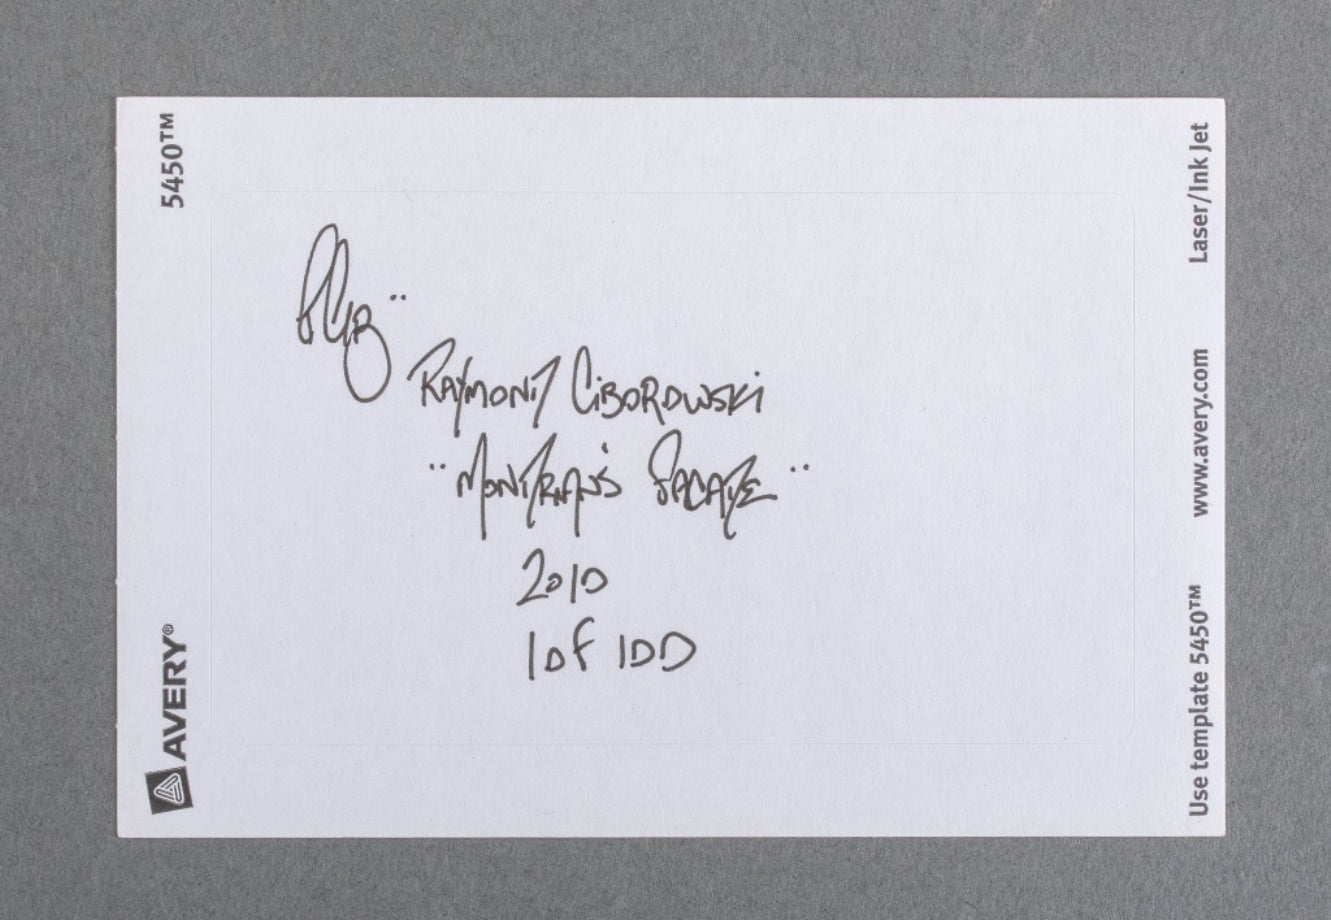 5450™
AVERY®
RAYMOND CIBOROWSKI
2010
1 OF 100
Laser/Ink Jet
www.avery.com
Use template 5450™